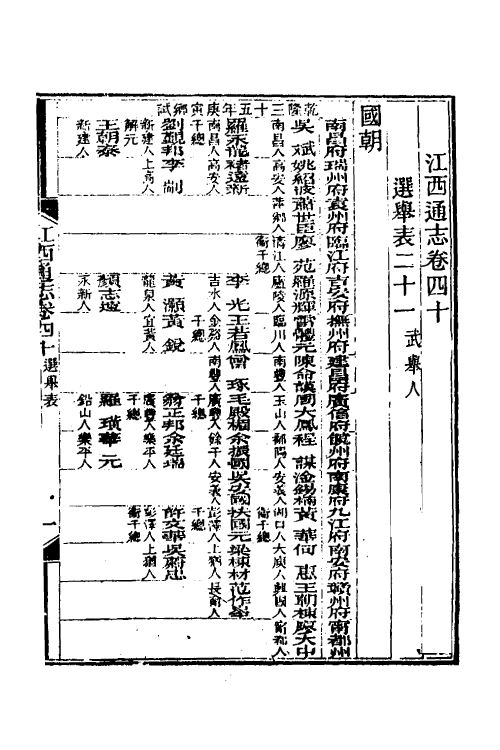 江西通志卷四十
選舉表二十一 武舉人
國朝
南昌府瑞州府袁州府臨江府吉安府撫州府建昌府廣信府饒州府南康府九江府南安府贛州府甯都州
乾隆三十五年庚寅鄉試
吳 斌姚紹浚蕭世臣廖 苑羅源輝雷體元陳命謨周大鳳程 謀淦錫楠黃 華何 忠王朝棟廖大中
南昌人高安人萍鄉人清江人廬陵人臨川人南豐人玉山人鄱陽人安義人湖口人大庾人興國人甯都人
衛千總
衛千總
羅永龍褚遠新
李 光王若鳳曾 琢毛殿楊余振國吳宏國扶國元梁棟材范作
南昌人高安人
吉水人金谿人南豐人廣豐人餘干人安義人彭澤人上猶人長甯人
千總
千總
千總
劉觀邦李 制
黃 灝黃 銳
翁正邦余廷瑞
許文華吳蔚忠
新建人上高人
龍泉人宜黃人
廣豐人樂平人
彭澤人上猶人
解元
千總
衛千總
王朝泰
顏志遠
羅 璜華 元
新建人
永新人
鉛山人樂平人
江西通志卷四十 選舉表
一